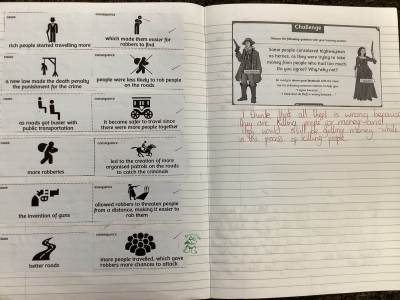 cause
consequence
rich people started travelling more
which made them easier for
robbers to find
cause
consequence
a new law made the death penalty
the punishment for the crime
people were less likely to rob people
on the roads
cause
consequence
as roads got busier with
public transportation
it became safer to travel since
there were more people together
cause
consequence
more robberies
led to the creation of more
organised patrols on the roads
to catch the criminals
cause
consequence
the invention of guns
allowed robbers to threaten people
from a distance, making it easier to
rob them
cause
consequence
better roads
more people travelled, which gave
robbers more chances to attack
Challenge
Discuss the following question with your learning partner.
Some people considered highwaymen
as heroes, as they were trying to take
money from people who had too much.
Do you agree? Why/why not?
I think that all theft is wrong because
they are killing people for money and
they would still be getting money while
in the process of killing people.